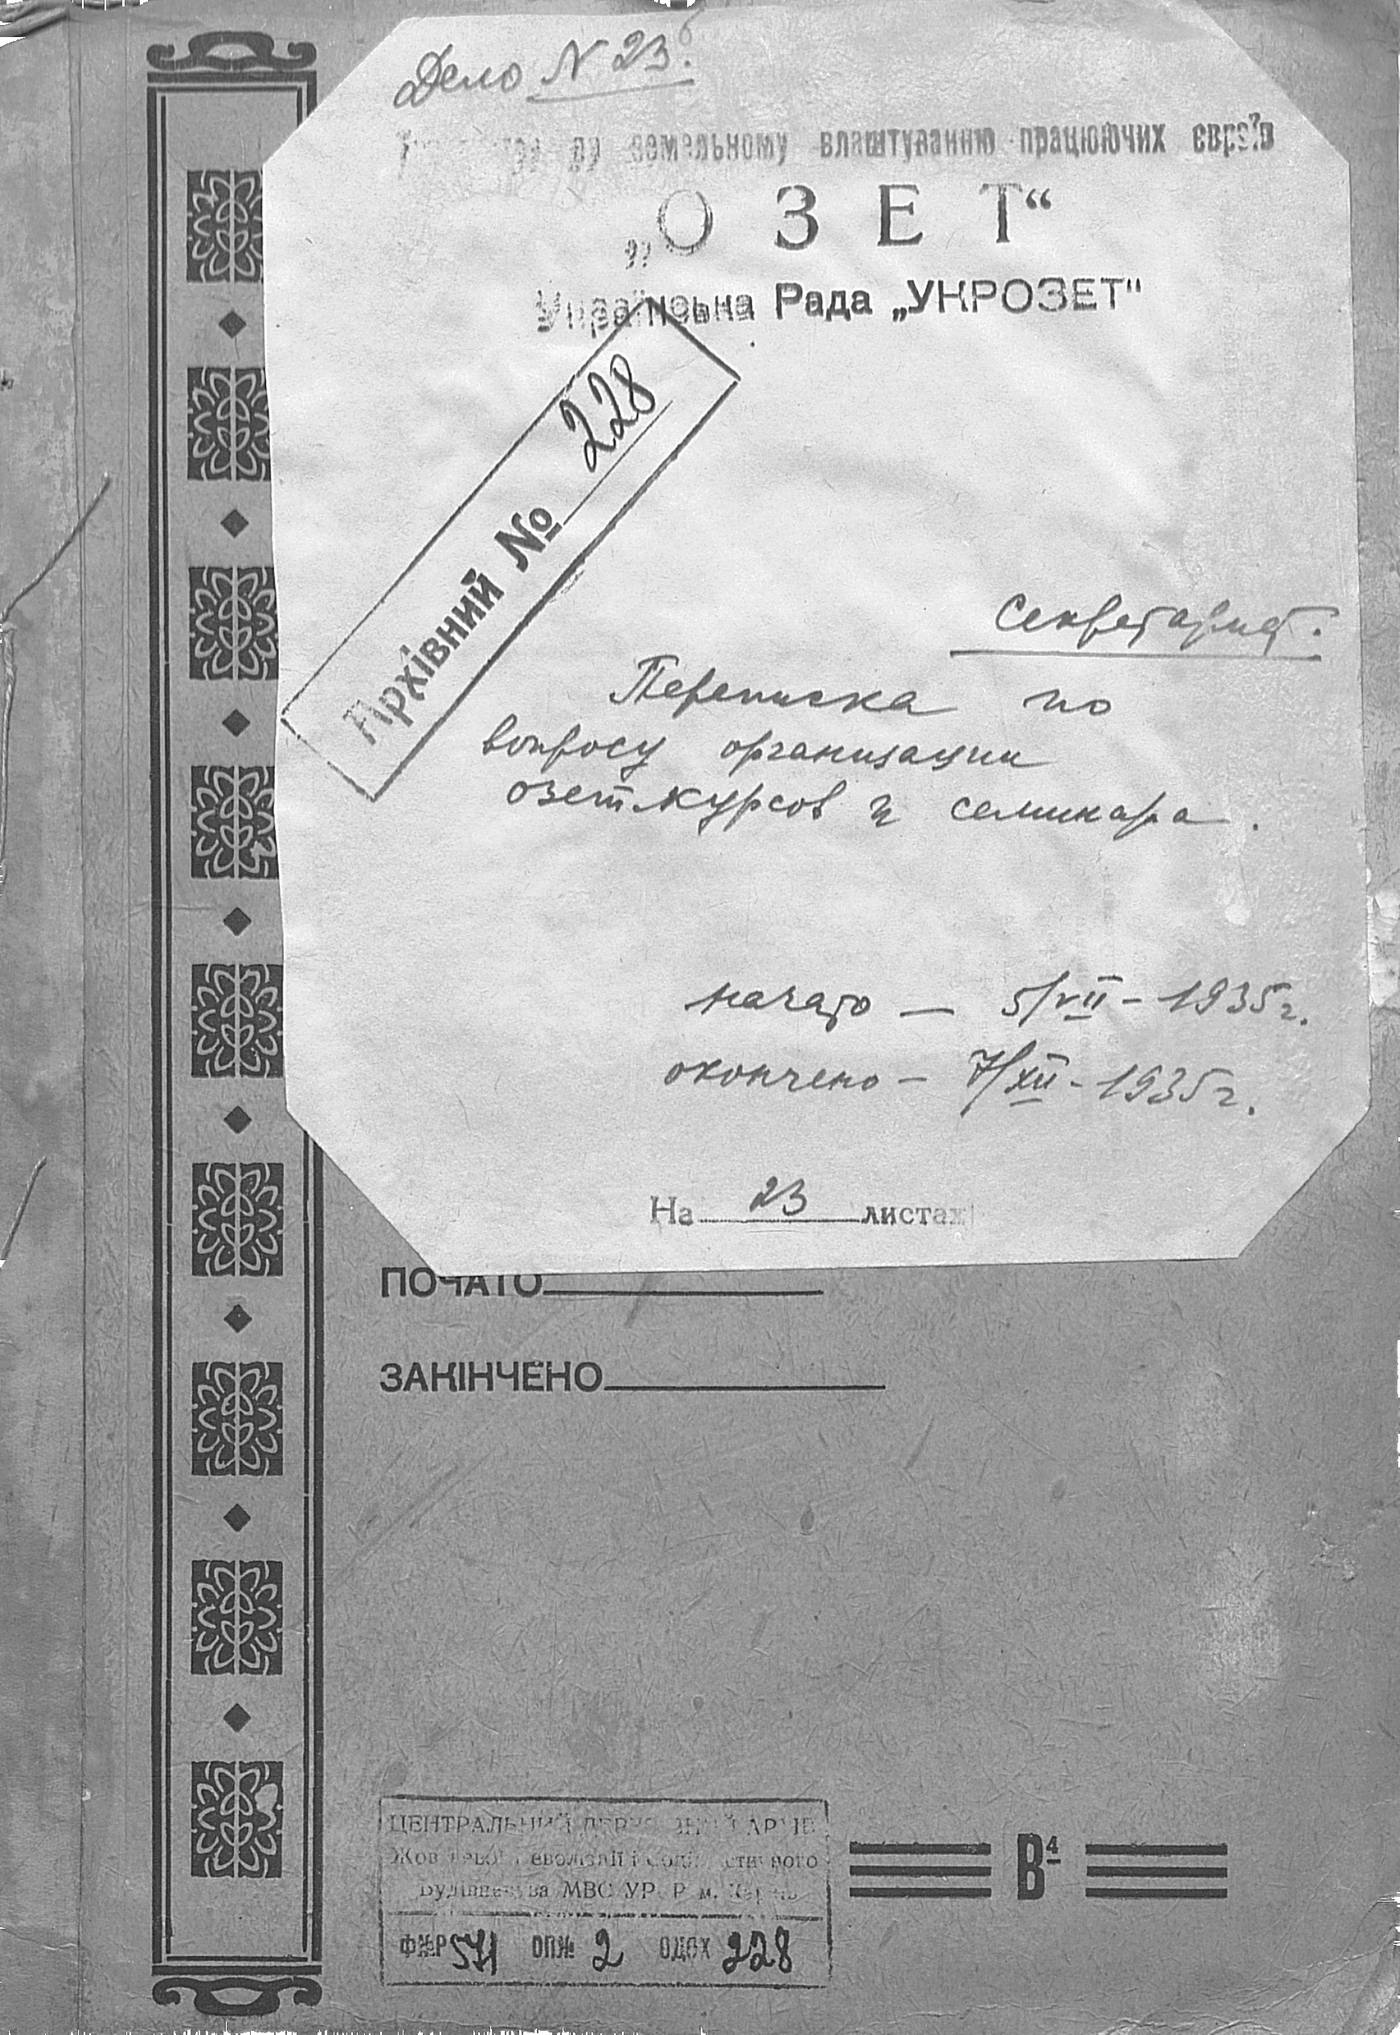 Дело N 23б.
земельному влаштуванню працюючих євреїв
„О З Е Т“
Українська Рада „УКРОЗЕТ“
Архівний № 228
Секретариат.
Переписка по
вопросу организации
озет.курсов и семинара.
начато — 5/VII - 1935г.
окончено — 7/XII - 1935г.
На 23 листах
ПОЧАТО
ЗАКІНЧЕНО
ЦЕНТРАЛЬНИЙ ДЕРЖАВНИЙ АРХІВ
Жовтневої Революції і Соціалістичного
Будівництва МВС УРСР м. Харків
Ф№Р 571 ОП№ 2 ОДЗХ 228
В4